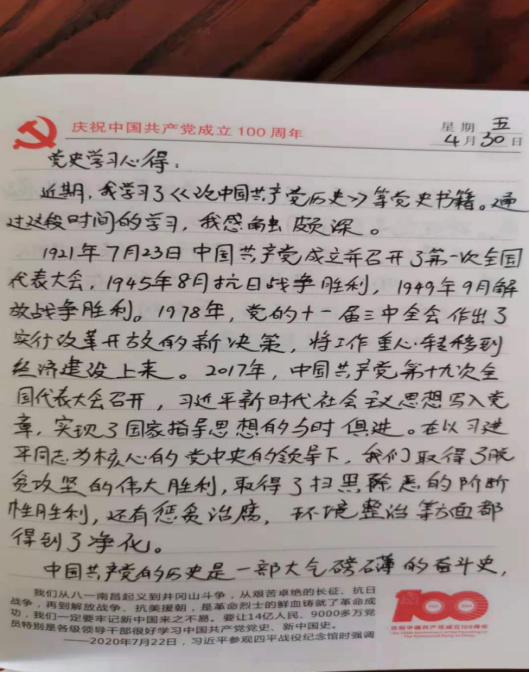 庆祝中国共产党成立100周年
星期 五
4月30日
党史学习心得：
近期，我学习了《论中国共产党历史》等党史书籍。通
过这段时间的学习，我感触颇深。
1921年7月23日中国共产党成立并召开了第一次全国
代表大会，1945年8月抗日战争胜利，1949年9月解
放战争胜利。1978年，党的十一届三中全会作出了
实行改革开放的新决策，将工作重心转移到
经济建设上来。2017年，中国共产党第十九次全
国代表大会召开，习近平新时代社会主义思想写入党
章，实现了国家指导思想的与时俱进。在以习近
平同志为核心的党中央的领导下，我们取得了脱
贫攻坚的伟大胜利，取得了扫黑除恶的阶断
性胜利，还有惩贪治腐，环境整治等方面都
得到了净化。
中国共产党的历史是一部大气磅礴的奋斗史，
我们从八一南昌起义到井冈山斗争，从艰苦卓绝的长征、抗日
战争，再到解放战争、抗美援朝，是革命烈士的鲜血铸就了革命成
功，我们一定要牢记新中国来之不易。要让14亿人民、9000多万党
员特别是各级领导干部很好学习中国共产党党史、新中国史。
——2020年7月22日，习近平参观四平战役纪念馆时强调
100
庆祝中国共产党成立100周年